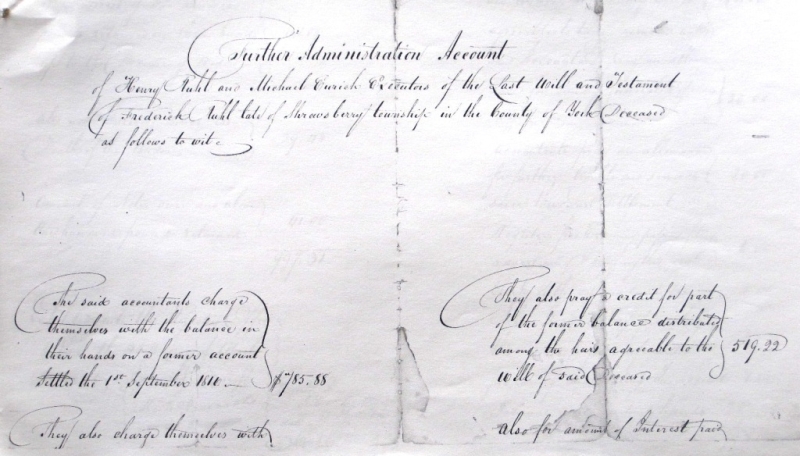 Further Administration Account
of Henry Ruhl and Michael Eurich Executors of the Last Will and Testament
of Frederick Ruhl late of Shrewsberry township in the County of York Deceased
as follows to wit
The said accountants charge
themselves with the balance in
their hands on a former account
settled the 1st September 1810 — $785.88
They also charge themselves with
They also pray a credit for part
of the former balance distributed
among the heirs agreeable to the 519.22
will of said Deceased
also for amount of Interest paid